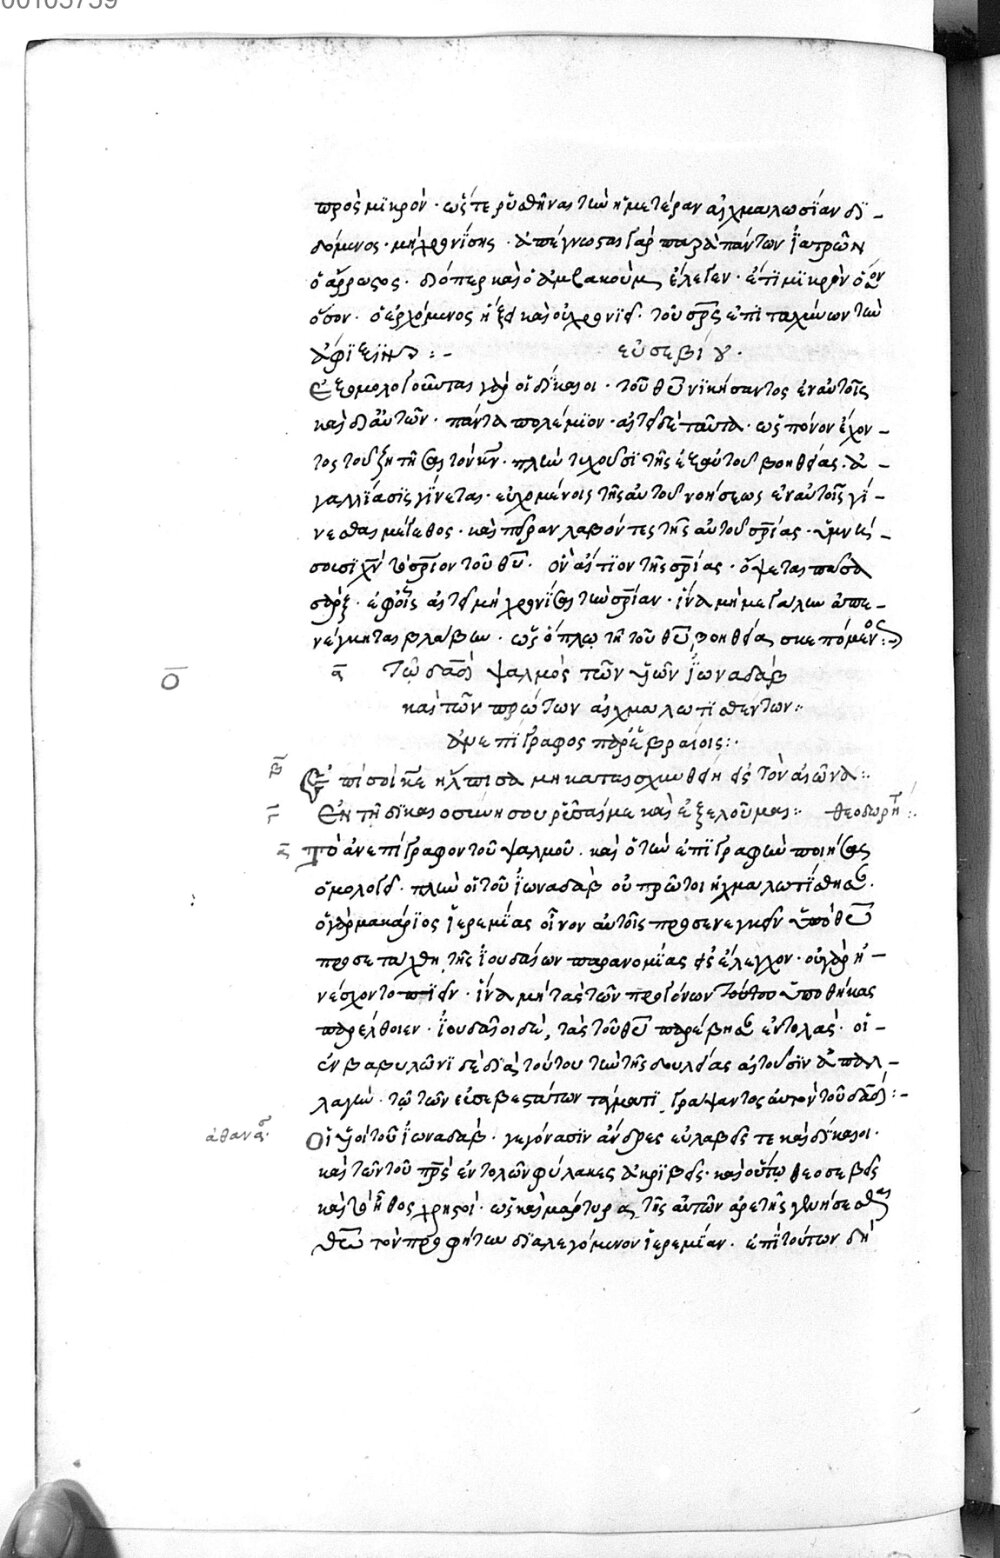 00105759
πρὸς μϊκρόν · ὥστε ῥυσθῆναι τὴν ἡμετέραν αἰχμαλωσίαν δϊ–
δόμενος · μὴ χρονίσῃς · ἀπέγνωσται γὰρ παρὰ πάντων ἰατρῶν
ὁ ἄρρωστος · διόπερ καὶ ὁ ἀμβακοὺμ ἔλεγεν · ἔτι μϊκρὸν ὅσον
ὅσον · ὁ ἐρχόμενος ἥξει καὶ οὐ χρονϊεῖ · τοῦ σρς ἐπιταχύνων τὴν
ἄφϊξιν :–
εὐσεβίου ·
Ἐξομολογοῦνται γὰρ οἱ δίκαιοι · τοῦ θυ νϊκήσαντος ἐν αὐτοῖς
καὶ δι αὐτῶν · πάντα πολέμϊον · αἰτεῖ δὲ ταῦτα · ὡς πόνον ἐχον–
τος τοῦ ζητῆσαι τὸν κν · πλὴν τυχοῦσϊ τῆς ἐξ αὐτοῦ βοηθείας · ἀ–
γαλλϊασϊς γίνεται · εὐχομένοις τῆς αὐτοῦ νοήσεως ἐν αὐτοῖς γί–
νεσθαι μέγεθος · καὶ πεῖραν λαβόντες τῆς αὐτοῦ σρίας · ὑμνεί–
σωσϊ χν τὸ σριον τοῦ θυ · ὃν αἴτϊον τῆς σρίας · ὄψεται πᾶσα
σάρξ · ἐφ οἷς αἰτεῖ μὴ χρονίσαι τὴν σρίαν · ἵνα μὴ μεγάλην ἀπε–
νέγκηται βλάβην · ὡς ὅπλῳ τῆ τοῦ θυ βοηθείᾳ σκεπόμενος :
ο
α Τῷ δαδ ψαλμὸς τῶν υἱῶν ἰωναδάβ
καὶ τῶν πρώτων αἰχμαλωτϊσθέντων :
ἀνεπίγραφος παρ ἑβραίοις :·
β Ἐπί σοί κε ἤλπισα μὴ καταισχυνθείη εἰς τὸν αἰῶνα :
γ Ἐν τῇ δϊκαιοσύνῃ σου ῥῦσαί με καὶ ἐξελοῦ μαι : θεοδωρήτ :·
α Τὸ ἀνεπίγραφον τοῦ ψαλμοῦ · καὶ ὁ τὴν ἐπϊγραφὴν ποιήσας
ὁμολογεῖ · πλὴν οἱ τοῦ ἰωναδὰβ οὐ πρῶτοι ἠχμαλωτϊσθησ ·
ὁ γὰρ μακάρϊος ἰερεμίας οἶνον αὐτοῖς προσενεγκεῖν ὑπὸ θυ
προσετάχθη τῆς ἰουδαίων παρανομίας εἰς ἔλεγχον · οὐ γὰρ ἠ–
νέσχοντο πϊεῖν · ἵνα μὴ τὰς τῶν προγόνων τούτου ὑποθήκας
παρέλθοιεν · ἰουδαῖοι δὲ, τὰς τοῦ θυ παρέβησ ἐντολάς · οἱ–
ἐν βαβυλῶνϊ δὲ δϊὰ τούτου τὴν τῆς δουλείας αἰτοῦσϊν ἀπαλ–
λαγὴν · τῷ τῶν εὐσεβεστάτων τάγματϊ, γράψαντος αὐτὸν τοῦ δαδ :–
ἀθανασ · Οἱ υἱοὶ τοῦ ἰωναδὰβ · γεγόνασϊν ἄνδρες εὐλαβεῖς τε καὶ δίκαιοι ·
καὶ τῶν τοῦ πρς ἐντολῶν φύλακες ἀκρϊβεῖς · καὶ οὕτω θεοσεβεῖς
καὶ τὸ ἦθος χρηστοί · ὡς καὶ μάρτυρας τῆς αὐτῶν ἀρετῆς γενήσεσθαι
θν τὸν προφήτην δϊαλεγόμενον ἰερεμίαν · ἐπὶ τούτων δὴ